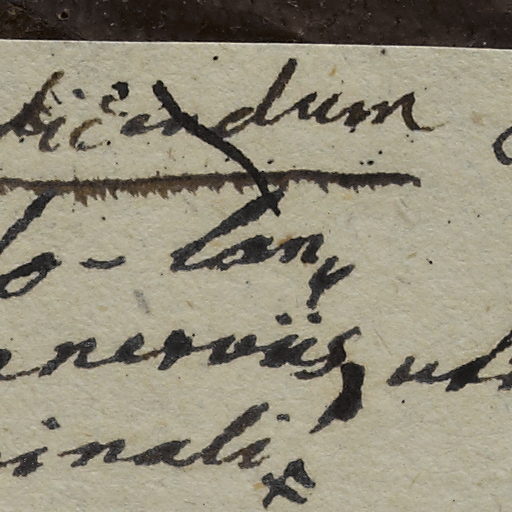 dicendum
o-lan
nerviis, ut
inali